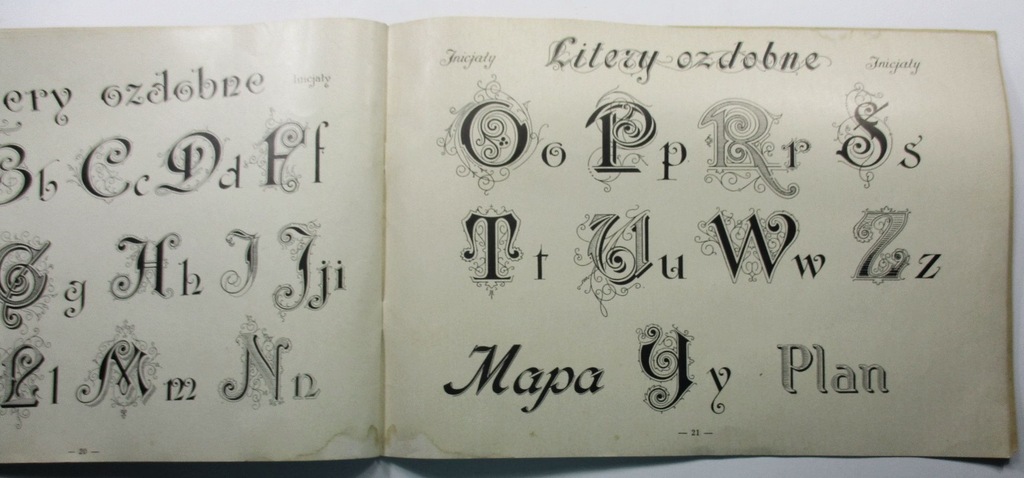 ery ozdobne Inicjały
Bb Cc Dd Ff
Gg Hh I Jji
Ll Mm Nn
— 20 —
Inicjały Litery ozdobne Inicjały
Oo Pp Rr Ss
Tt Uu Ww Zz
Mapa Yy Plan
— 21 —